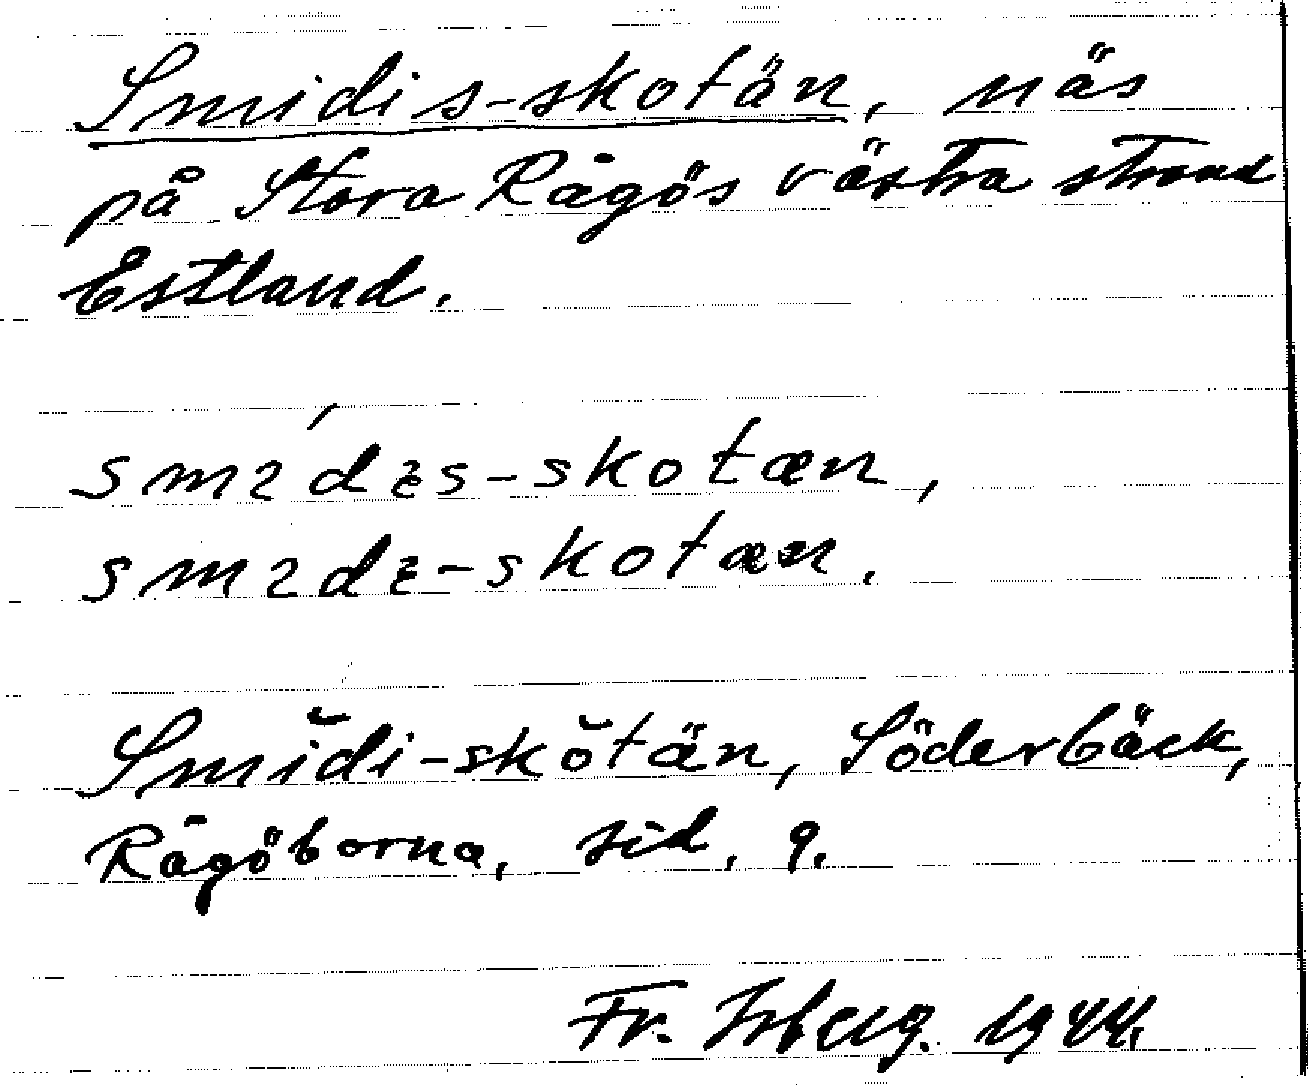 Smidis-skotän, näs
på Stora Rågös västra strand
Estland.
smɪ́dɪs-skotæn,
smɪdɪ-skotæn.
Smĭdi-skŏtän, Söderbäck,
Rågöborna, sid. 9.
Fr. Isberg. 1944.